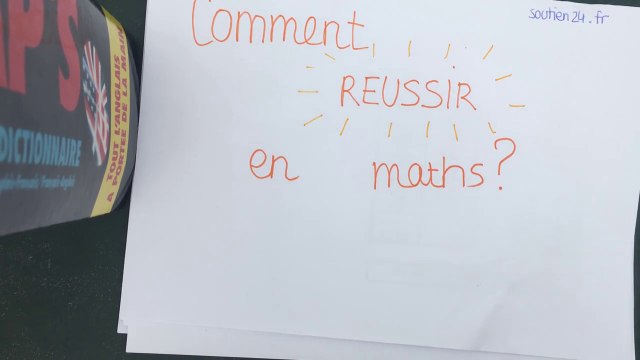 soutien24.fr
Comment
REUSSIR
en maths?
AP'S
DICTIONNAIRE
A TOUT L'ANGLAIS
A PORTÉE DE LA MAIN